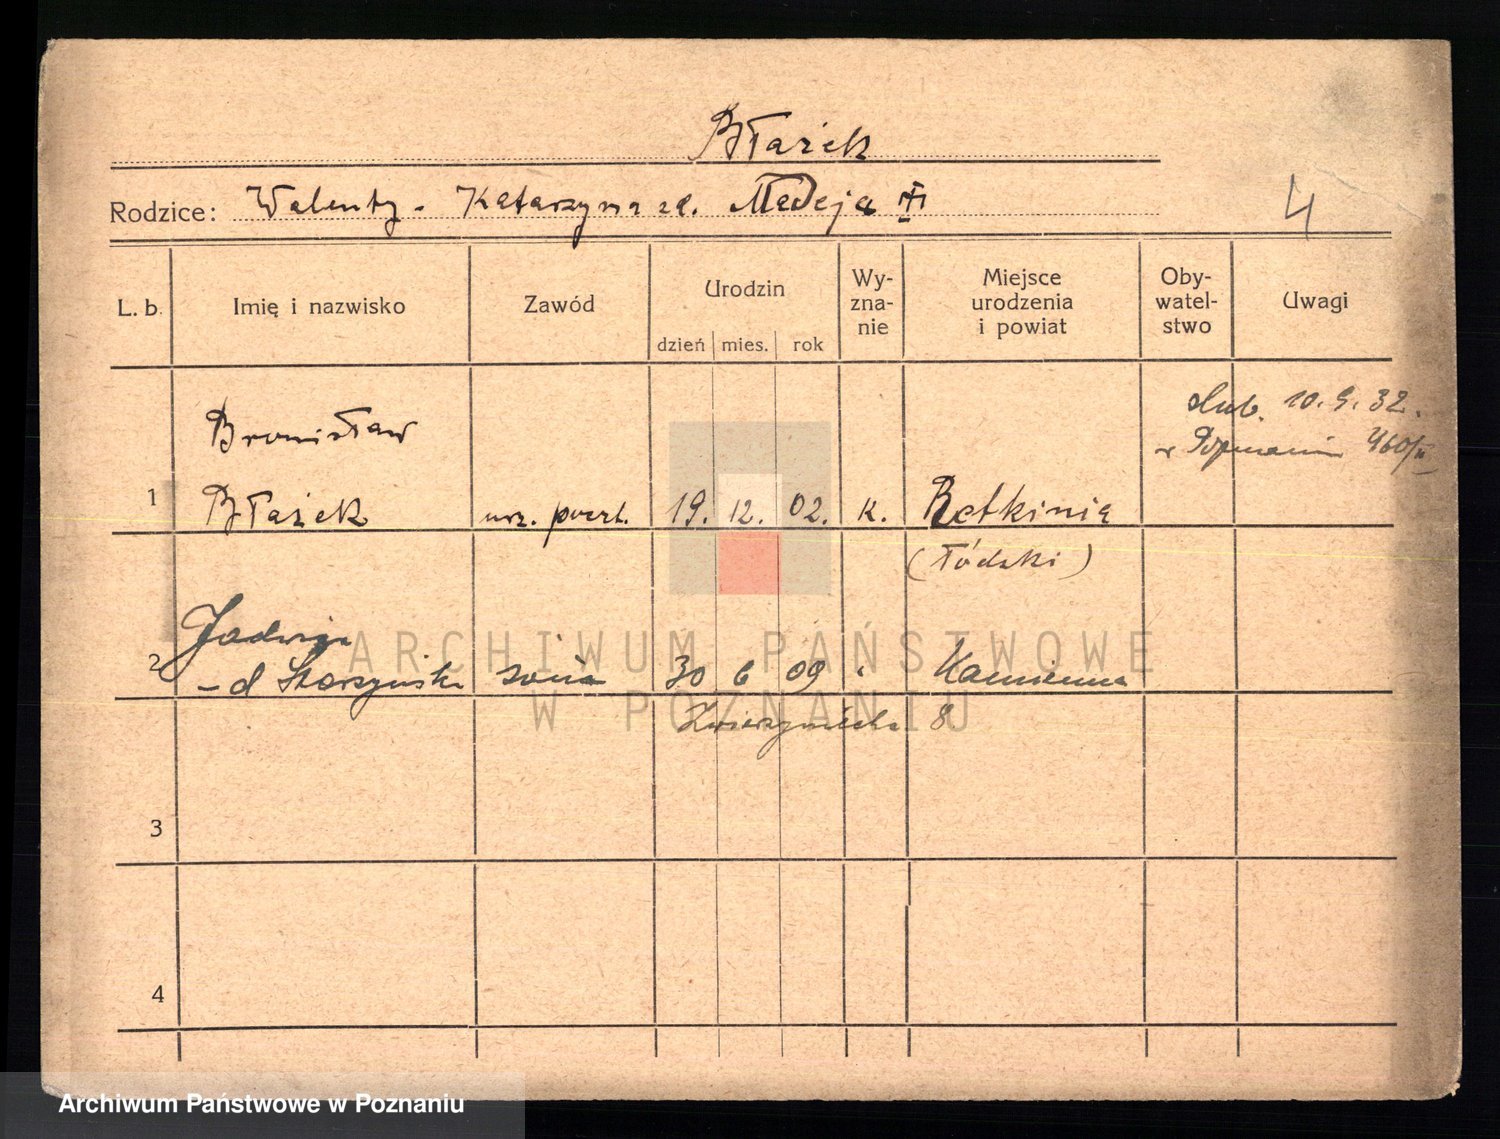 Błażek
Rodzice: Walenty - Katarzyna zd. Madeja
4
L. b. Imię i nazwisko Zawód Urodzin dzień mies. rok Wy-zna-nie Miejsce urodzenia i powiat Oby-watel-stwo Uwagi
ślub. 10. 9. 32.
w Poznaniu 460/II
Bronisław
1 Błażek urz. poczt. 19. 12. 02. k. Retkinia
(łódzki)
Jadwiga
2 - d Skarzyńska żona 30 6 09 " Kamienna
Zwierzyniecka 8
3
4
ARCHIWUM PAŃSTWOWE
W POZNANIU
Archiwum Państwowe w Poznaniu